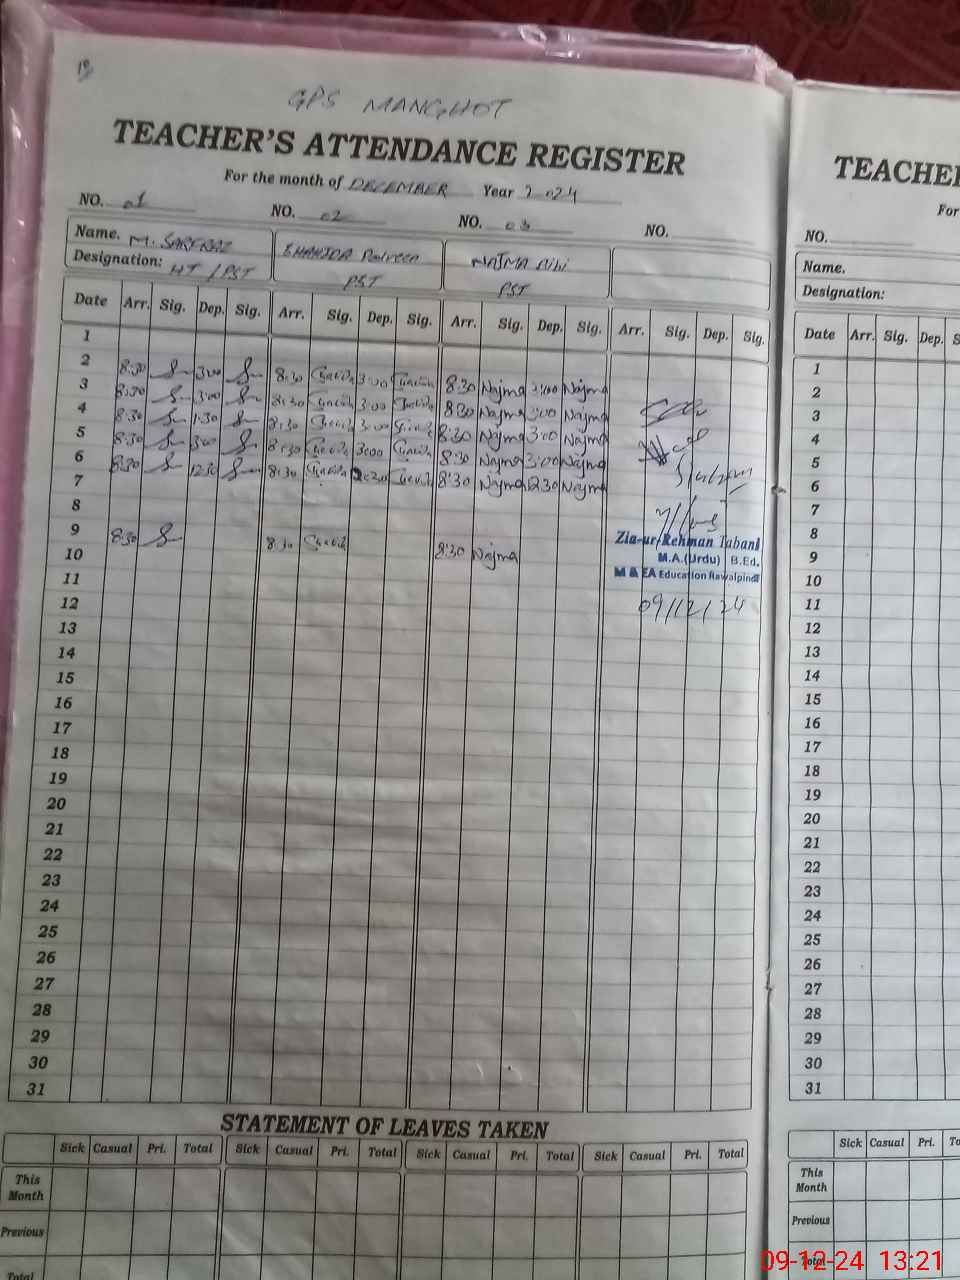 GPS MANGHOT
TEACHER'S ATTENDANCE REGISTER
For the month of DECEMBER Year 2024
NO. 01 NO. 02 NO. 03 NO.
Name. M. SARFRAZ SHAHIDA Parveen NAJMA Bibi
Designation: HT / PST PST PST
Date Arr. Sig. Dep. Sig. Arr. Sig. Dep. Sig. Arr. Sig. Dep. Sig. Arr. Sig. Dep. Sig.
1
2 8:30 3:00 8:30 3:00 8:30 Najma 3:00 Najma
3 8:30 3:00 8:30 3:00 8:30 Najma 3:00 Najma
4 8:30 1:30 8:30 3:00 8:30 Najma 3:00 Najma
5 8:30 3:00 8:30 3:00 8:30 Najma 3:00 Najma
6 8:30 12:30 8:30 12:30 8:30 Najma 12:30 Najma
7
8
9 8:30 8:30 8:30 Najma
10
11
12
13
14
15
16
17
18
19
20
21
22
23
24
25
26
27
28
29
30
31
Zia-ur-Rehman Tabani
M.A.(Urdu) B.Ed.
M & EA Education Rawalpindi
09/12/24
STATEMENT OF LEAVES TAKEN
Sick Casual Pri. Total Sick Casual Pri. Total Sick Casual Pri. Total Sick Casual Pri. Total
This Month
Previous
Total
TEACHER
For
NO.
Name.
Designation:
Date Arr. Sig. Dep. S
1
2
3
4
5
6
7
8
9
10
11
12
13
14
15
16
17
18
19
20
21
22
23
24
25
26
27
28
29
30
31
Sick Casual Pri. To
This Month
Previous
Total
09-12-24 13:21